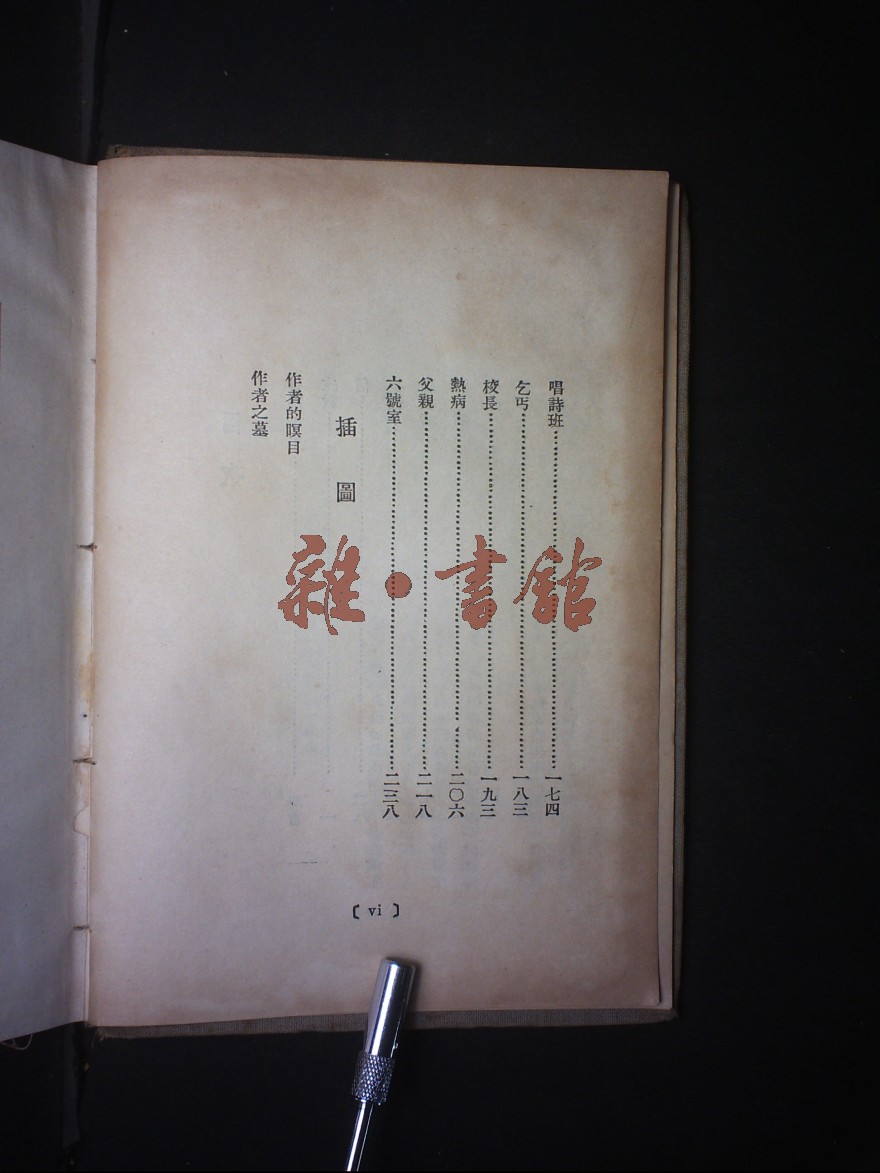 唱詩班…………一七四
乞丐…………一八三
校長…………一九三
熱病…………二〇六
父親…………二一八
六號室…………二三八
插圖
作者的瞑目
作者之墓
〔vi〕
雜·書館